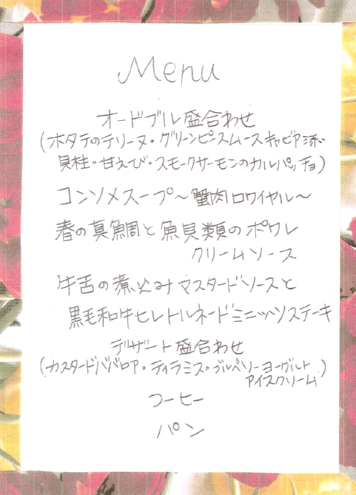 Menu
オードブル盛合わせ
(ホタテのテリーヌ・グリーンピースムースキャビア添い
貝柱・甘えび・スモークサーモンのカルパッチョ)
コンソメスープ～蟹肉ロワイヤル～
春の真鯛と魚貝類のポワレ
クリームソース
牛舌の煮込みマスタードソースと
黒毛和牛ヒレトルネードミニッツステーキ
デザート盛合わせ
(カスタードババロア・ティラミス・ブルベリーヨーグルト
アイスクリーム)
コーヒー
パン